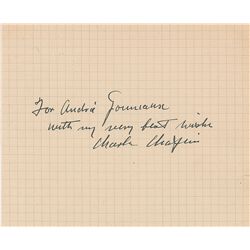 For André
with my very best wishes
Charles Chaplin